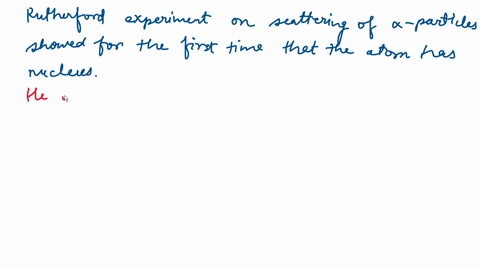 Rutherford experiment on scattering of α-particles
showed for the first time that the atom has
nucleus.
He